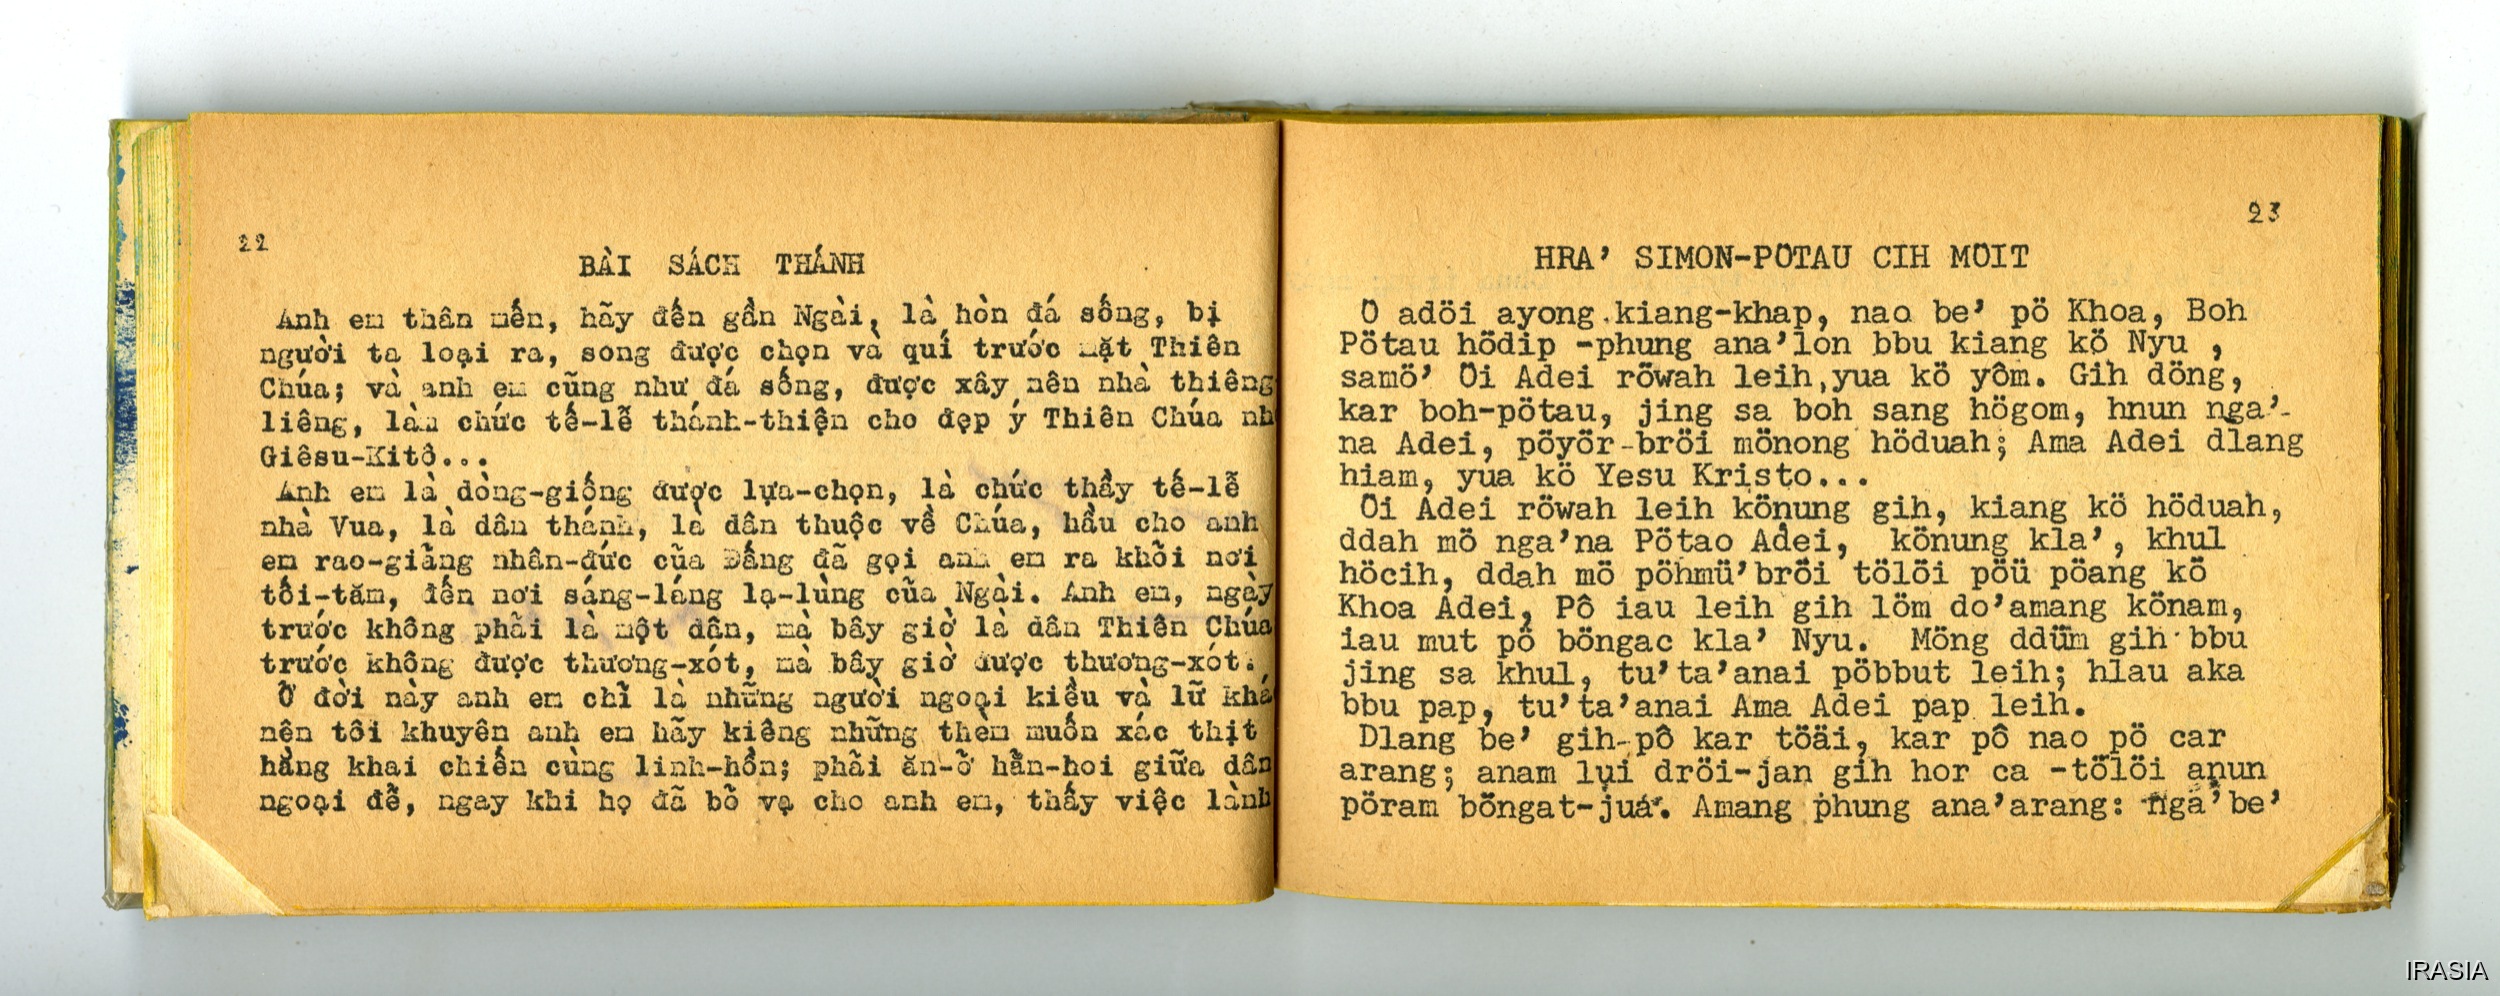 22
BÀI SÁCH THÁNH
Anh em thân mến, hãy đến gần Ngài, là hòn đá sống, bị
người ta loại ra, song được chọn và quí trước mặt Thiên
Chúa; và anh em cũng như đá sống, được xây nên nhà thiêng
liêng, làm chức tế-lễ thánh-thiện cho đẹp ý Thiên Chúa nh
Giêsu-Kitô...
Anh em là dòng-giống được lựa-chọn, là chức thầy tế-lễ
nhà Vua, là dân thánh, là dân thuộc về Chúa, hầu cho anh
em rao-giảng nhân-đức của Đấng đã gọi anh em ra khỏi nơi
tối-tăm, đến nơi sáng-láng lạ-lùng của Ngài. Anh em, ngày
trước không phải là một dân, mà bây giờ là dân Thiên Chúa
trước không được thương-xót, mà bây giờ được thương-xót.
Ở đời này anh em chỉ là những người ngoại kiều và lữ khá
nên tôi khuyên anh em hãy kiêng những thèm muốn xác thịt
hằng khai chiến cùng linh-hồn; phải ăn-ở hẳn-hoi giữa dân
ngoại để, ngay khi họ đã bỏ vạ cho anh em, thấy việc lành
23
HRA' SIMON-PÖTAU CIH MÖIT
Ö adöi ayong kiang-khap, nao be' pö Khoa, Boh
Pötau hödip -phung ana'lon bbu kiang kö Nyu ,
samö' Öi Adei röwah leih,yua kö yôm. Gih döng,
kar boh-pötau, jing sa boh sang högom, hnun nga'-
na Adei, pöyör-bröi mönong höduah; Ama Adei dlang
hiam, yua kö Yesu Kristo...
Öi Adei röwah leih könung gih, kiang kö höduah,
ddah mö nga'na Pötao Adei, könung kla', khul
höcih, ddah mö pöhmü'bröi tölöi pöü pöang kö
Khoa Adei, Pô iau leih gih löm do'amang könam,
iau mut pö böngac kla' Nyu. Möng ddüm gih bbu
jing sa khul, tu'ta'anai pöbbut leih; hlau aka
bbu pap, tu'ta'anai Ama Adei pap leih.
Dlang be' gih-pô kar töäi, kar pô nao pö car
arang; anam lụi dröi-jan gih hor ca -tölöi anun
pöram böngat-jua. Amang phung ana'arang: nga'be'
IRASIA